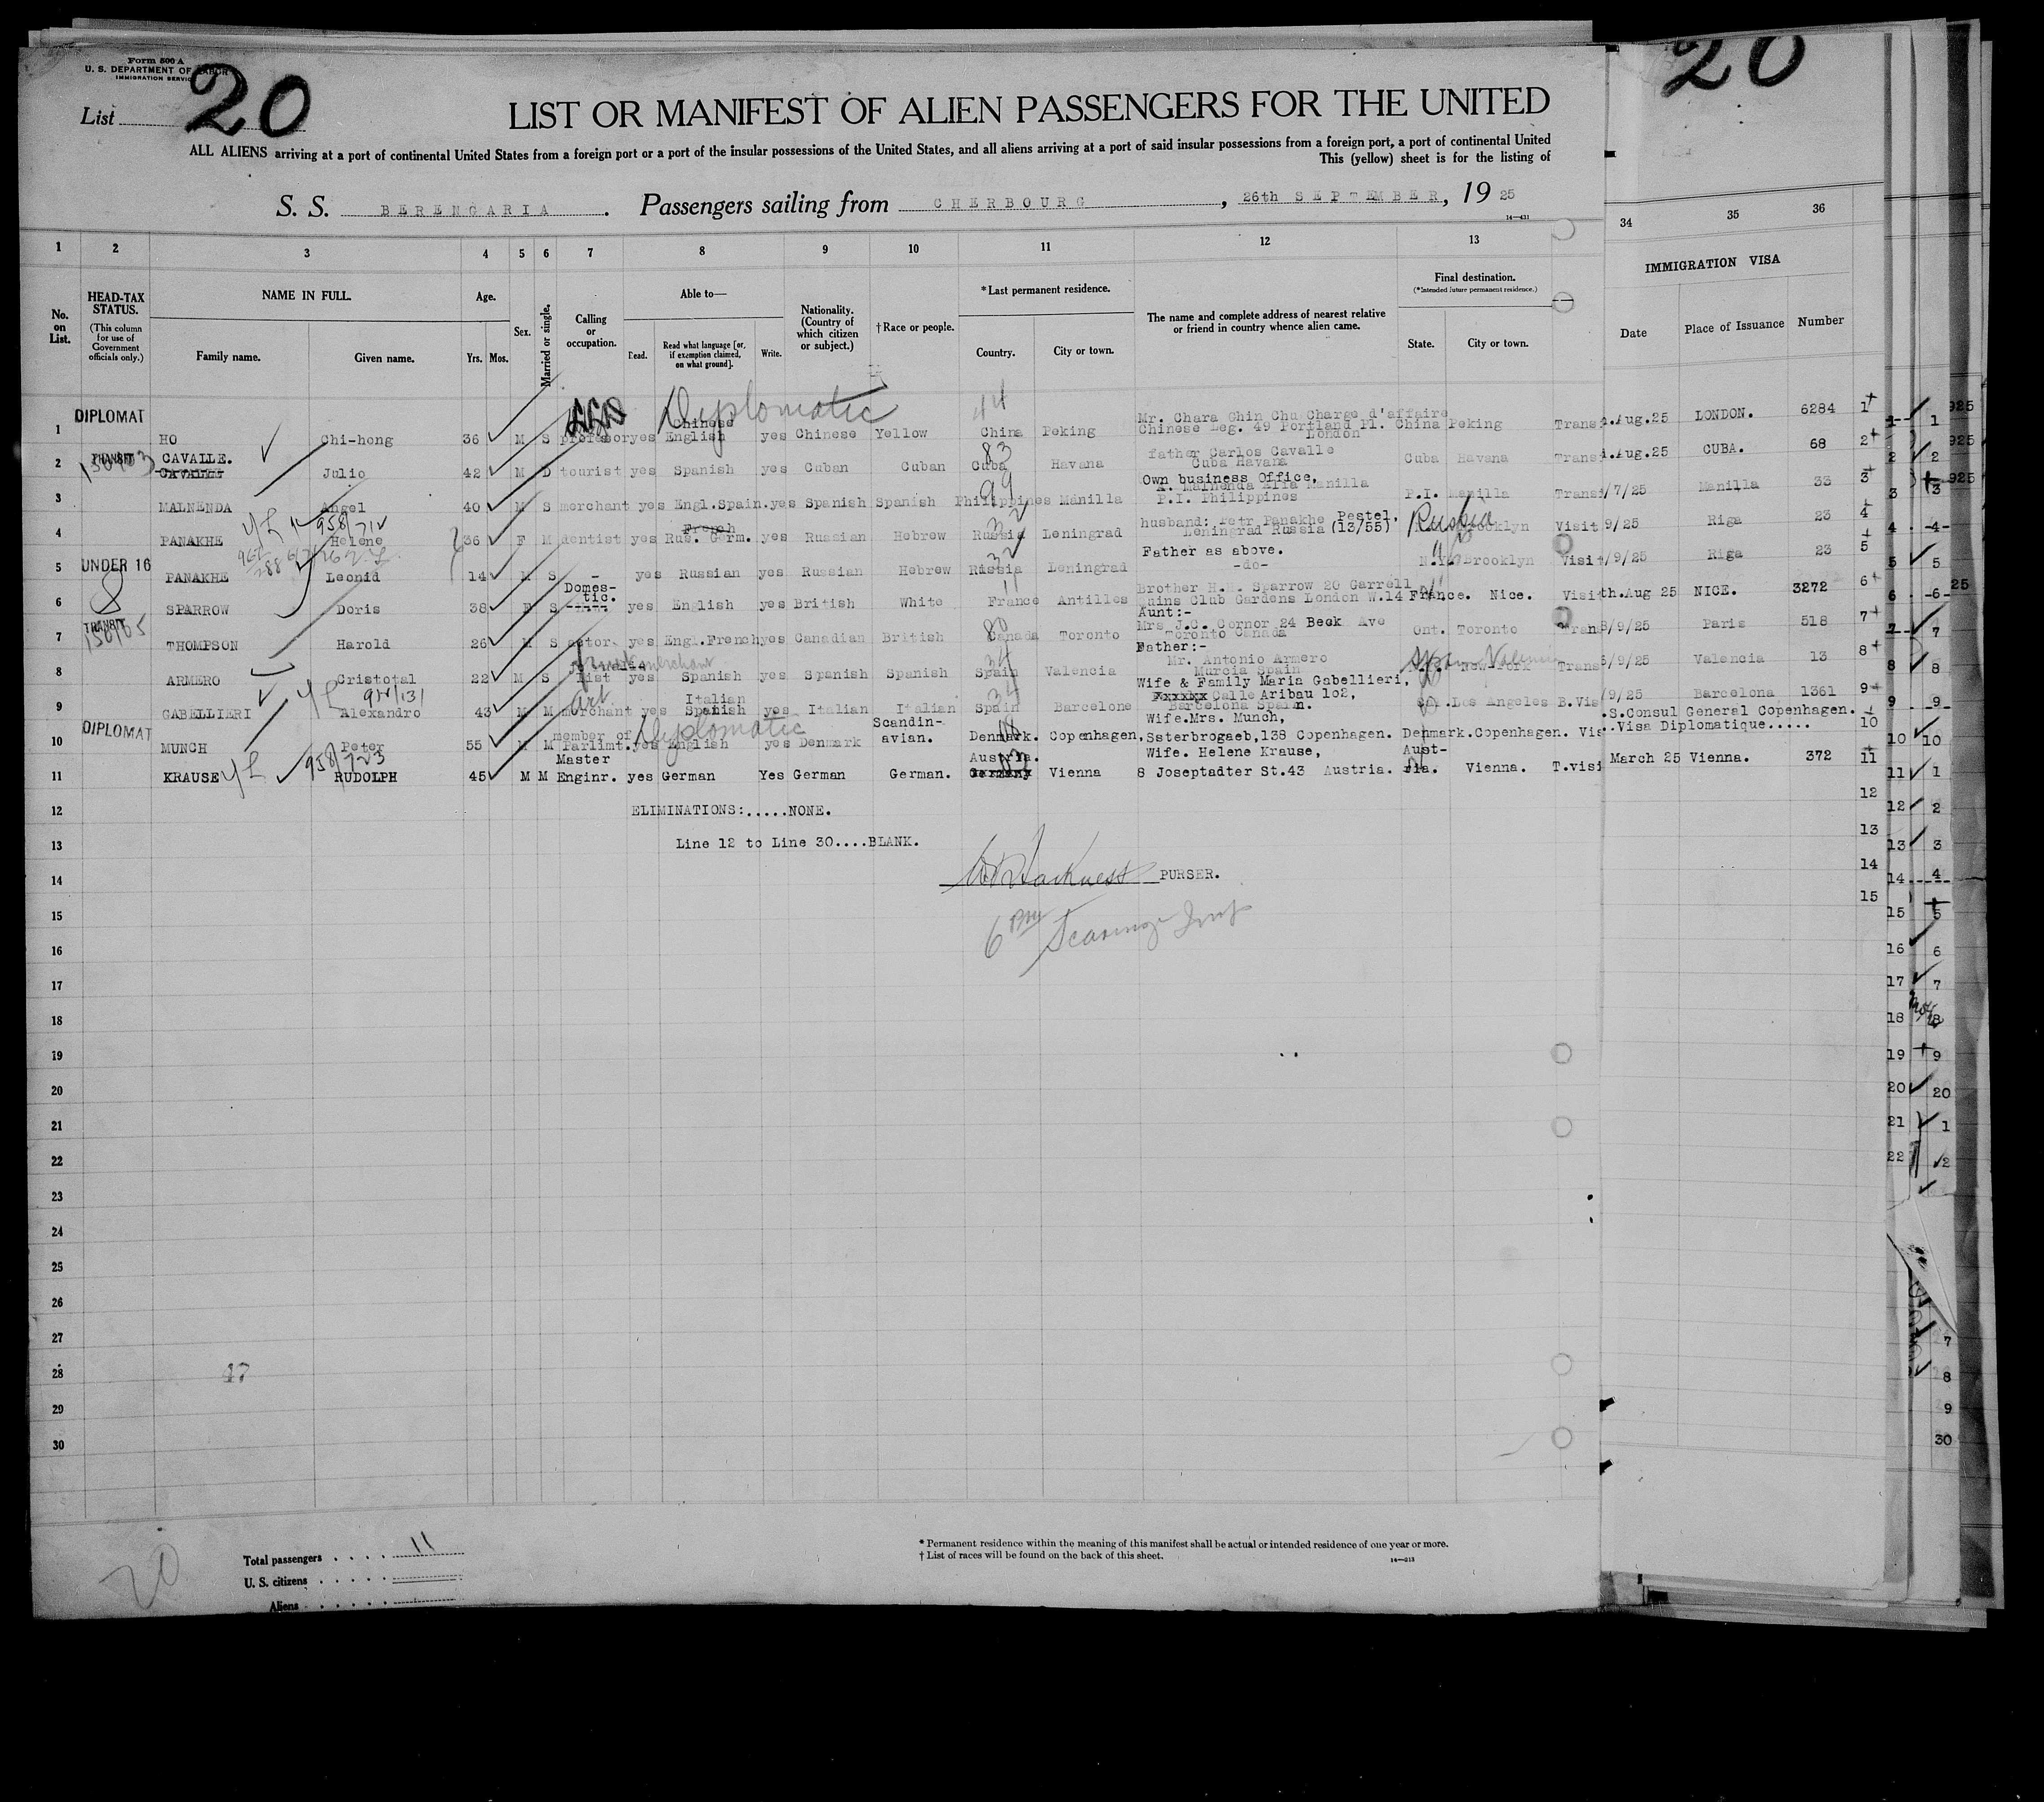 Form 500 A
U. S. DEPARTMENT OF LABOR
IMMIGRATION SERVICE
List 20
20
LIST OR MANIFEST OF ALIEN PASSENGERS FOR THE UNITED
ALL ALIENS arriving at a port of continental United States from a foreign port or a port of the insular possessions of the United States, and all aliens arriving at a port of said insular possessions from a foreign port, a port of continental United
This (yellow) sheet is for the listing of
S. S. BERENGARIA. Passengers sailing from CHERBOURG, 26th SEPTEMBER, 19 25
14—431
1 2 3 4 5 6 7 8 9 10 11 12 13 34 35 36
No. on List.
HEAD-TAX STATUS.
(This column for use of Government officials only.)
NAME IN FULL.
Family name. Given name.
Age.
Yrs. Mos.
Sex.
Married or single.
Calling or occupation.
Able to—
Read. Read what language [or, if exemption claimed, on what ground]. Write.
Nationality. (Country of which citizen or subject.)
†Race or people.
*Last permanent residence.
Country. City or town.
The name and complete address of nearest relative or friend in country whence alien came.
Final destination.
(*Intended future permanent residence.)
State. City or town.
IMMIGRATION VISA
Date Place of Issuance Number
DIPLOMAT Diplomatic 44 Mr. Chara Chin Chu Charge d'affaire
Chinese Chinese Leg. 49 Portland Pl.
1 HO Chi-hong 36 M S professor yes English yes Chinese Yellow China Peking London China Peking Transi .Aug.25 LONDON. 6284 1
TRANSIT CAVALLE. 83 father Carlos Cavalle
2 CAVALLE Julio 42 M D tourist yes Spanish yes Cuban Cuban Cuba Havana Cuba Havana Cuba Havana Transi .Aug.25 CUBA. 68 2
99 Own business Office,
3 MALNENDA Angel 40 M S merchant yes Engl.Spain. yes Spanish Spanish Philippines Manilla A. Malnenda Alla Manilla P.I. Philippines P.I. Manilla Transi /7/25 Manilla 33 3
958/712 French husband: Petr Panakhe Pestel, Russia
4 PANAKHE Helene 36 F M dentist yes Rus. Germ. yes Russian Hebrew Russia Leningrad Leningrad Russia (13/55) Brooklyn Visit 9/25 Riga 23 4
UNDER 16 32 Father as above.
5 PANAKHE Leonid 14 M S - yes Russian yes Russian Hebrew Russia Leningrad -do- N.Y. Brooklyn Visit /9/25 Riga 23 5
Domes-tic. Brother H.H. Sparrow 20 Garrell
6 SPARROW Doris 38 F S yes English yes British White France Antilles Mains Club Gardens London W.14 France. Nice. Visit h.Aug 25 NICE. 3272 6
TRANSIT 80 Aunt:-
Mrs J.C. Cornor 24 Beck Ave
7 THOMPSON Harold 26 M S actor yes Engl.French yes Canadian British Canada Toronto Toronto Canada Ont. Toronto Trans 8/9/25 Paris 518 7
34 Father:-
Mr. Antonio Armero Spain Valencia
8 ARMERO Cristotal 22 M S yes Spanish yes Spanish Spanish Spain Valencia Murcia Spain New York Trans 5/9/25 Valencia 13 8
Art Italian 34 Wife & Family Maria Gabellieri,
xxxxxx Calle Aribau 102,
9 GABELLIERI Alexandro 43 M M merchant yes Spanish yes Italian Italian Spain Barcelone Barcelona Spain. Cal. Los Angeles B.Vis /9/25 Barcelona 1361 9
DIPLOMAT member of Diplomatic Scandin- Wife.Mrs. Munch, .S.Consul General Copenhagen.
10 MUNCH Peter 55 M M Parlimt. yes English yes Denmark avian. Denmark. Copenhagen, Ssterbrogaeb,138 Copenhagen. Denmark. Copenhagen. Vis ..Visa Diplomatique..... 10
958/723 Master Austria. Wife. Helene Krause, Aust-
11 KRAUSE RUDOLPH 45 M M Enginr. yes German Yes German German. Germany Vienna 8 Joseptadter St.43 Austria. ria. Vienna. T.visi March 25 Vienna. 372 11
12 ELIMINATIONS:.....NONE. 12
13 Line 12 to Line 30....BLANK. 13
14 PURSER. 14
15 15
16
17
18
19
20
21
22
23
24
25
26
27
28 47
29
30
20
Total passengers 11
U. S. citizens
Aliens
* Permanent residence within the meaning of this manifest shall be actual or intended residence of one year or more.
† List of races will be found on the back of this sheet.
14—313